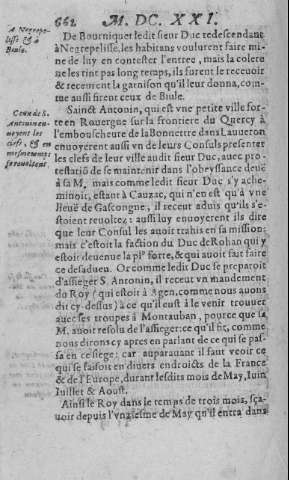 662 M. DC. XXI.
A Negrepelisse
& à
Biule.
De Bourniquet ledit sieur Duc tedescendant
à Negrepelisse, les habitans voulurent faire mine
de luy en contester l'entree, mais la colere
ne les tint pas long temps, ils furent le receuoir
& recement la garnison qu'il leur donna, comme
aussi firent ceux de Biule.
Ceux de S.
Antonin enuoyent
les
clefs, & en
mesme temps
se reuoltent.
Sainct Antonin, qui est vne petite ville forte
en Rouergue sur la frontiere du Quercy à
l'emboucheure de la Bonnette dans l'Aueron
enuoyerent aussi vn de leurs Consuls presenter
les clefs de leur ville audit sieur Duc, auec protestatiõ
de se maintenir dans l'obeyssance deuë
à sa M, mais comme ledit sieur Duc s'y acheminoit,
estant à Cauzac, qui n'en est qu'à vne
lieuë de Gascongne, il receut aduis qu'ils s'estoient
reuoltez: aussi luy enuoyerent ils dire
que leur Consul les auoit trahis en sa mission:
mais c'estoit la faction du Duc de Rohan qui y
estoit deuenue la plº forte, & qui auoit fait faire
ce desadueu. Or comme ledit Duc se preparoit
d'assieger S. Antonin, il receut vn mandement
du Roy (qui estoit à Agen, comme nous auons
dit cy-dessus) à ce qu'il eust à le venir trouuer
auec ses troupes à Montauban, pource que sa
M. auoit resolu de l'assieger: ce qu'il fit, comme
nous dirons cy apres en parlant de ce qui se passa
en ce siege: car auparauant il faut veoir ce
qui se faisoit en diuers endroicts de la France
& de l'Europe, durant lesdits mois de May, Iuin
Iuillet & Aoust.
Ainsi le Roy dans le temps de trois mois, sçauoir
depuis l'vnziesme de May qu'il entra dans